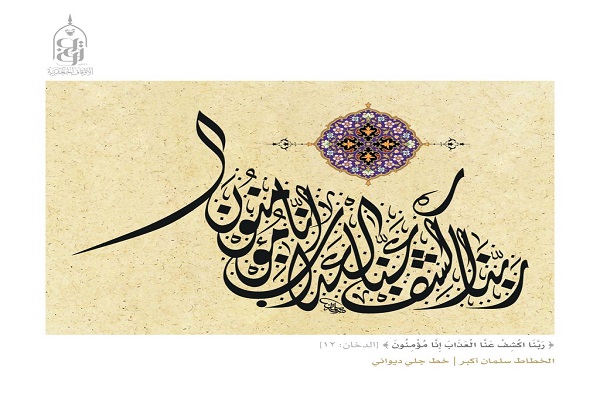 ربنا اكشف عنا العذاب إنا مؤمنون
﴿ رَبَّنَا اكْشِفْ عَنَّا الْعَذَابَ إِنَّا مُؤْمِنُونَ ﴾ [الدخان: ١٢]
الخطاط سلمان أكبر | خط جلي ديواني